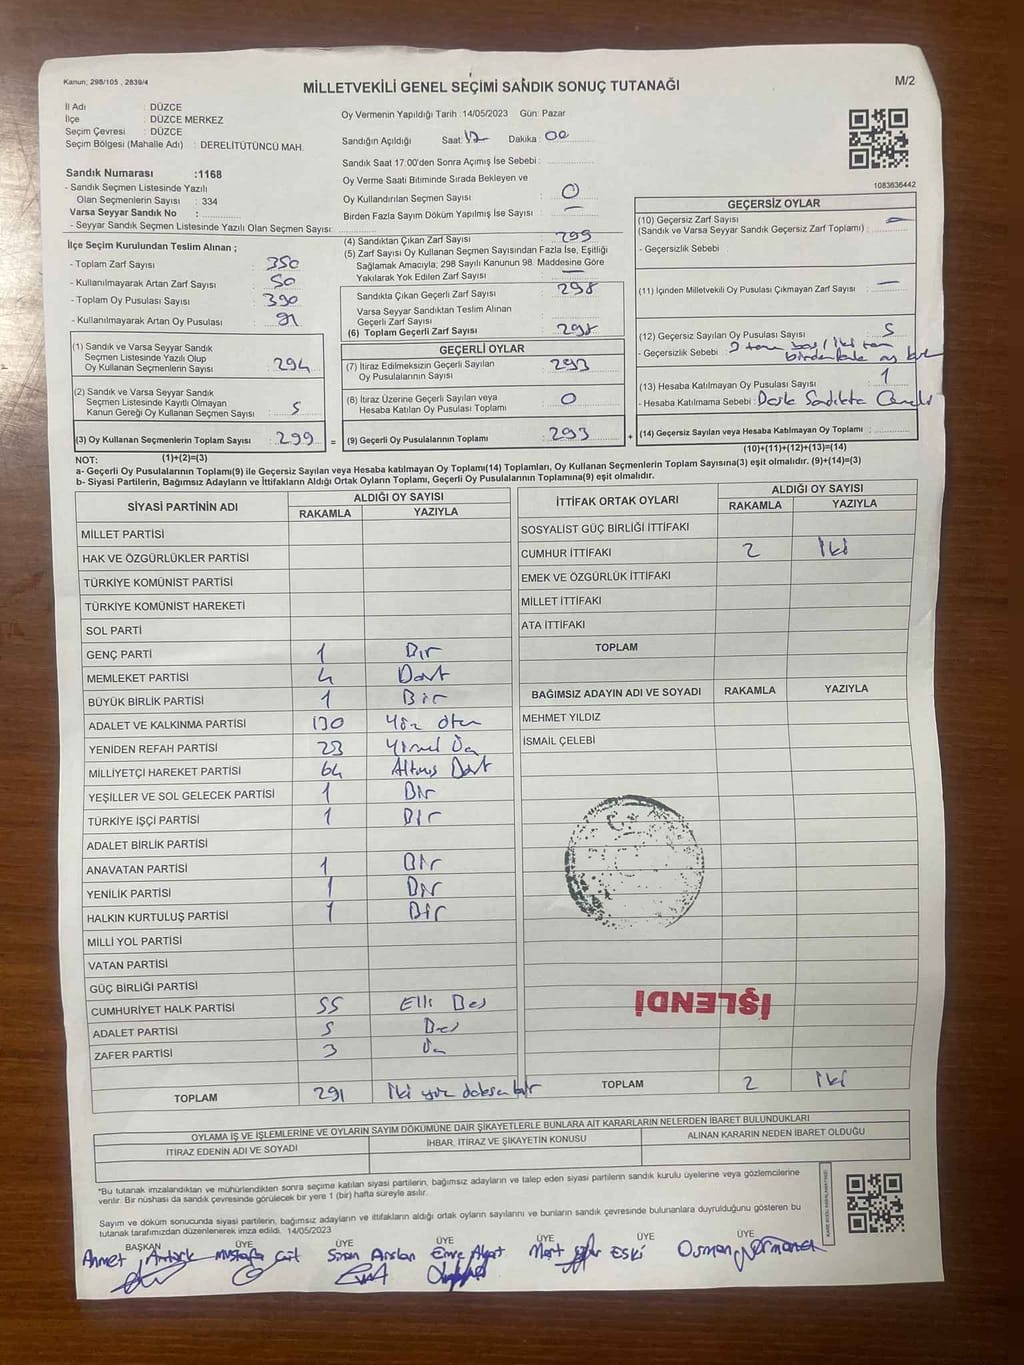 Kanun, 298/105 , 2839/4
MİLLETVEKİLİ GENEL SEÇİMİ SANDIK SONUÇ TUTANAĞI
M/2
İl Adı : DÜZCE
İlçe : DÜZCE MERKEZ
Seçim Çevresi : DÜZCE
Seçim Bölgesi (Mahalle Adı) : DERELİTÜTÜNCÜ MAH.
Sandık Numarası :1168
- Sandık Seçmen Listesinde Yazılı
Olan Seçmenlerin Sayısı : 334
Varsa Seyyar Sandık No :
- Seyyar Sandık Seçmen Listesinde Yazılı Olan Seçmen Sayısı:
İlçe Seçim Kurulundan Teslim Alınan ;
- Toplam Zarf Sayısı : 350
- Kullanılmayarak Artan Zarf Sayısı : 50
- Toplam Oy Pusulası Sayısı : 390
- Kullanılmayarak Artan Oy Pusulası : 91
(1) Sandık ve Varsa Seyyar Sandık
Seçmen Listesinde Yazılı Olup
Oy Kullanan Seçmenlerin Sayısı : 294
(2) Sandık ve Varsa Seyyar Sandık
Seçmen Listesinde Kayıtlı Olmayan
Kanun Gereği Oy Kullanan Seçmen Sayısı : 5
(3) Oy Kullanan Seçmenlerin Toplam Sayısı : 299 =
Oy Vermenin Yapıldığı Tarih :14/05/2023 Gün: Pazar
Sandığın Açıldığı Saat: 17 Dakika : 00
Sandık Saat 17:00'den Sonra Açımış İse Sebebi :
Oy Verme Saati Bitiminde Sırada Bekleyen ve
Oy Kullandırılan Seçmen Sayısı : 0
Birden Fazla Sayım Döküm Yapılmış İse Sayısı : —
(4) Sandıktan Çıkan Zarf Sayısı : 299
(5) Zarf Sayısı Oy Kullanan Seçmen Sayısından Fazla İse, Eşitliği
Sağlamak Amacıyla; 298 Sayılı Kanunun 98. Maddesine Göre
Yakılarak Yok Edilen Zarf Sayısı : —
Sandıkta Çıkan Geçerli Zarf Sayısı : 298
Varsa Seyyar Sandıktan Teslim Alınan
Geçerli Zarf Sayısı :
(6) Toplam Geçerli Zarf Sayısı : 298
GEÇERLİ OYLAR
(7) İtiraz Edilmeksizin Geçerli Sayılan
Oy Pusulalarının Sayısı : 293
(8) İtiraz Üzerine Geçerli Sayılan veya
Hesaba Katılan Oy Pusulası Toplamı : 0
(9) Geçerli Oy Pusulalarının Toplamı : 293 +
1083636442
GEÇERSİZ OYLAR
(10) Geçersiz Zarf Sayısı —
(Sandık ve Varsa Seyyar Sandık Geçersiz Zarf Toplamı) :
- Geçersizlik Sebebi :
(11) İçinden Milletvekili Oy Pusulası Çıkmayan Zarf Sayısı : —
(12) Geçersiz Sayılan Oy Pusulası Sayısı : 5
- Geçersizlik Sebebi : boş / iki
birden oy
(13) Hesaba Katılmayan Oy Pusulası Sayısı : 1
- Hesaba Katılmama Sebebi : Sandıkta
(14) Geçersiz Sayılan veya Hesaba Katılmayan Oy Toplamı :
(10)+(11)+(12)+(13)=(14)
NOT: (1)+(2)=(3)
a- Geçerli Oy Pusulalarının Toplamı(9) ile Geçersiz Sayılan veya Hesaba katılmayan Oy Toplamı(14) Toplamları, Oy Kullanan Seçmenlerin Toplam Sayısına(3) eşit olmalıdır. (9)+(14)=(3)
b- Siyasi Partilerin, Bağımsız Adayların ve İttifakların Aldığı Ortak Oyların Toplamı, Geçerli Oy Pusulalarının Toplamına(9) eşit olmalıdır.
SİYASİ PARTİNİN ADI
ALDIĞI OY SAYISI
RAKAMLA YAZIYLA
MİLLET PARTİSİ
HAK VE ÖZGÜRLÜKLER PARTİSİ
TÜRKİYE KOMÜNİST PARTİSİ
TÜRKİYE KOMÜNİST HAREKETİ
SOL PARTİ
GENÇ PARTİ 1 Bir
MEMLEKET PARTİSİ 4 Dört
BÜYÜK BİRLİK PARTİSİ 1 Bir
ADALET VE KALKINMA PARTİSİ 130 Yüz Otuz
YENİDEN REFAH PARTİSİ 23 Yirmi Üç
MİLLİYETÇİ HAREKET PARTİSİ 64 Altmış Dört
YEŞİLLER VE SOL GELECEK PARTİSİ 1 Bir
TÜRKİYE İŞÇİ PARTİSİ 1 Bir
ADALET BİRLİK PARTİSİ
ANAVATAN PARTİSİ 1 Bir
YENİLİK PARTİSİ 1 Bir
HALKIN KURTULUŞ PARTİSİ 1 Bir
MİLLİ YOL PARTİSİ
VATAN PARTİSİ
GÜÇ BİRLİĞİ PARTİSİ
CUMHURİYET HALK PARTİSİ 55 Elli Beş
ADALET PARTİSİ 5 Beş
ZAFER PARTİSİ 3 Üç
TOPLAM 291 İki yüz doksan bir
İTTİFAK ORTAK OYLARI
ALDIĞI OY SAYISI
RAKAMLA YAZIYLA
SOSYALİST GÜÇ BİRLİĞİ İTTİFAKI
CUMHUR İTTİFAKI 2 İki
EMEK VE ÖZGÜRLÜK İTTİFAKI
MİLLET İTTİFAKI
ATA İTTİFAKI
TOPLAM
BAĞIMSIZ ADAYIN ADI VE SOYADI RAKAMLA YAZIYLA
MEHMET YILDIZ
İSMAİL ÇELEBİ
İŞLENDİ
TOPLAM 2 İki
OYLAMA İŞ VE İŞLEMLERİNE VE OYLARIN SAYIM DÖKÜMÜNE DAİR ŞİKAYETLERLE BUNLARA AİT KARARLARIN NELERDEN İBARET BULUNDUKLARI
İTİRAZ EDENİN ADI VE SOYADI
İHBAR, İTİRAZ VE ŞİKAYETİN KONUSU
ALINAN KARARIN NEDEN İBARET OLDUĞU
*Bu tutanak imzalandıktan ve mühürlendikten sonra seçime katılan siyasi partilerin, bağımsız adayların ve talep eden siyasi partilerin sandık kurulu üyelerine veya gözlemcilerine
verilir. Bir nüshası da sandık çevresinde görülecek bir yere 1 (bir) hafta süreyle asılır.
Sayım ve döküm sonucunda siyasi partilerin, bağımsız adayların ve ittifakların aldığı ortak oyların sayılarını ve bunların sandık çevresinde bulunanlara duyrulduğunu gösteren bu
tutanak tarafımızdan düzenlenerek imza edildi. 14/05/2023
BAŞKAN ÜYE ÜYE ÜYE ÜYE ÜYE ÜYE
Ahmet Mustafa Sinan Arslan Emre Mert ESKİ Osman